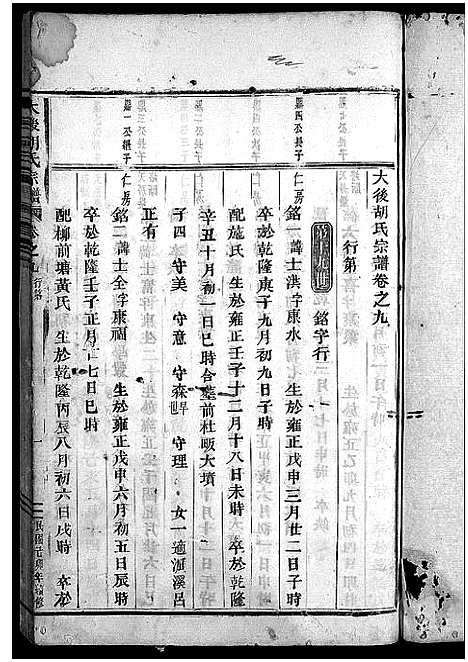 大後胡氏宗譜卷之九
行第
第十九世 銘字行
縣四公長子 仁房
銘一 諱士洪字東水 生於雍正戊申三月廿二日子時
卒於乾隆庚子九月初九日子時
配施氏 生於雍正壬子十二月十八日未時 卒於乾隆
辛丑十月初一日巳時合墓前杜畈大墳
子四 守美 守意 守森 守理 女一適 溪呂
正有
縣一公繼子 仁房
銘二 諱士全字東福 生於雍正戊申六月初五日辰時
卒於乾隆壬子正月十七日巳時
配柳前塘黃氏 生於乾隆丙辰八月初六日戌時 卒於
大後胡氏宗譜 卷之九 行第 一